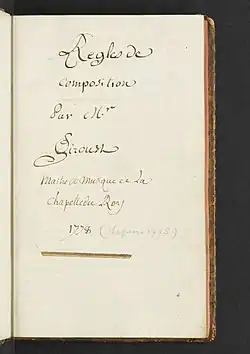 Regles de
composition
Par Mr.
Giroust
Maitre de Musique de La
Chapelle du Roy
1778